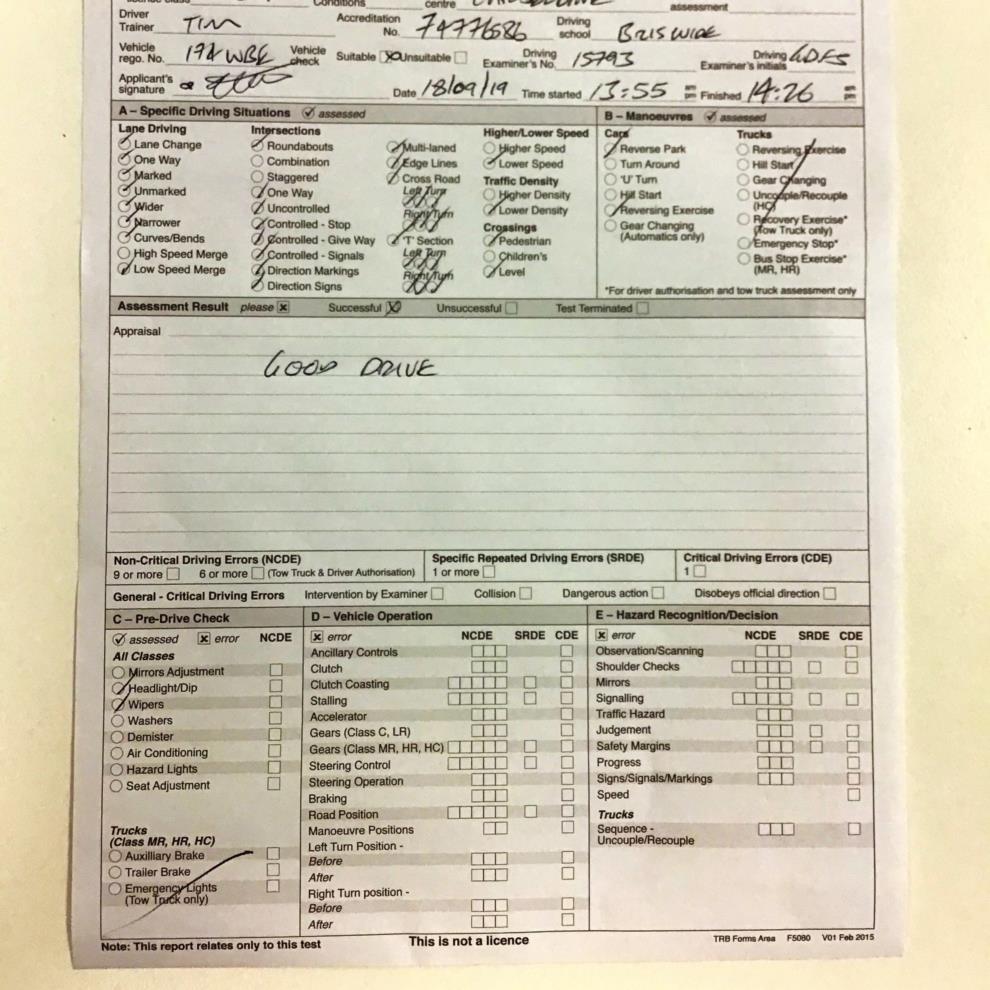 Conditions centre assessment
Driver Trainer TIM Accreditation No. 74776586 Driving school BRISWIDE
Vehicle rego. No. Vehicle check Suitable Unsuitable Driving Examiner's No. 15793 Driving Examiner's initials
Applicant's signature Date 18/09/19 Time started 13:55 am pm Finished 14:26 am pm
A – Specific Driving Situations assessed
Lane Driving
Lane Change
One Way
Marked
Unmarked
Wider
Narrower
Curves/Bends
High Speed Merge
Low Speed Merge
Intersections
Roundabouts
Combination
Staggered
One Way
Uncontrolled
Controlled - Stop
Controlled - Give Way
Controlled - Signals
Direction Markings
Direction Signs
Multi-laned
Edge Lines
Cross Road
Left Turn
Right Turn
'T' Section
Left Turn
Right Turn
Higher/Lower Speed
Higher Speed
Lower Speed
Traffic Density
Higher Density
Lower Density
Crossings
Pedestrian
Children's
Level
B – Manoeuvres assessed
Cars
Reverse Park
Turn Around
'U' Turn
Hill Start
Reversing Exercise
Gear Changing
(Automatics only)
Trucks
Reversing Exercise
Hill Start
Gear Changing
Uncouple/Recouple
(HC)
Recovery Exercise*
(Tow Truck only)
Emergency Stop*
Bus Stop Exercise*
(MR, HR)
*For driver authorisation and tow truck assessment only
Assessment Result please Successful Unsuccessful Test Terminated
Appraisal
GOOD DRIVE
Non-Critical Driving Errors (NCDE)
9 or more 6 or more (Tow Truck & Driver Authorisation)
Specific Repeated Driving Errors (SRDE)
1 or more
Critical Driving Errors (CDE)
1
General - Critical Driving Errors Intervention by Examiner Collision Dangerous action Disobeys official direction
C – Pre-Drive Check
assessed error NCDE
All Classes
Mirrors Adjustment
Headlight/Dip
Wipers
Washers
Demister
Air Conditioning
Hazard Lights
Seat Adjustment
Trucks
(Class MR, HR, HC)
Auxilliary Brake
Trailer Brake
Emergency Lights
(Tow Truck only)
D – Vehicle Operation
error NCDE SRDE CDE
Ancillary Controls
Clutch
Clutch Coasting
Stalling
Accelerator
Gears (Class C, LR)
Gears (Class MR, HR, HC)
Steering Control
Steering Operation
Braking
Road Position
Manoeuvre Positions
Left Turn Position -
Before
After
Right Turn position -
Before
After
E – Hazard Recognition/Decision
error NCDE SRDE CDE
Observation/Scanning
Shoulder Checks
Mirrors
Signalling
Traffic Hazard
Judgement
Safety Margins
Progress
Signs/Signals/Markings
Speed
Trucks
Sequence -
Uncouple/Recouple
Note: This report relates only to this test This is not a licence TRB Forms Area F5080 V01 Feb 2015